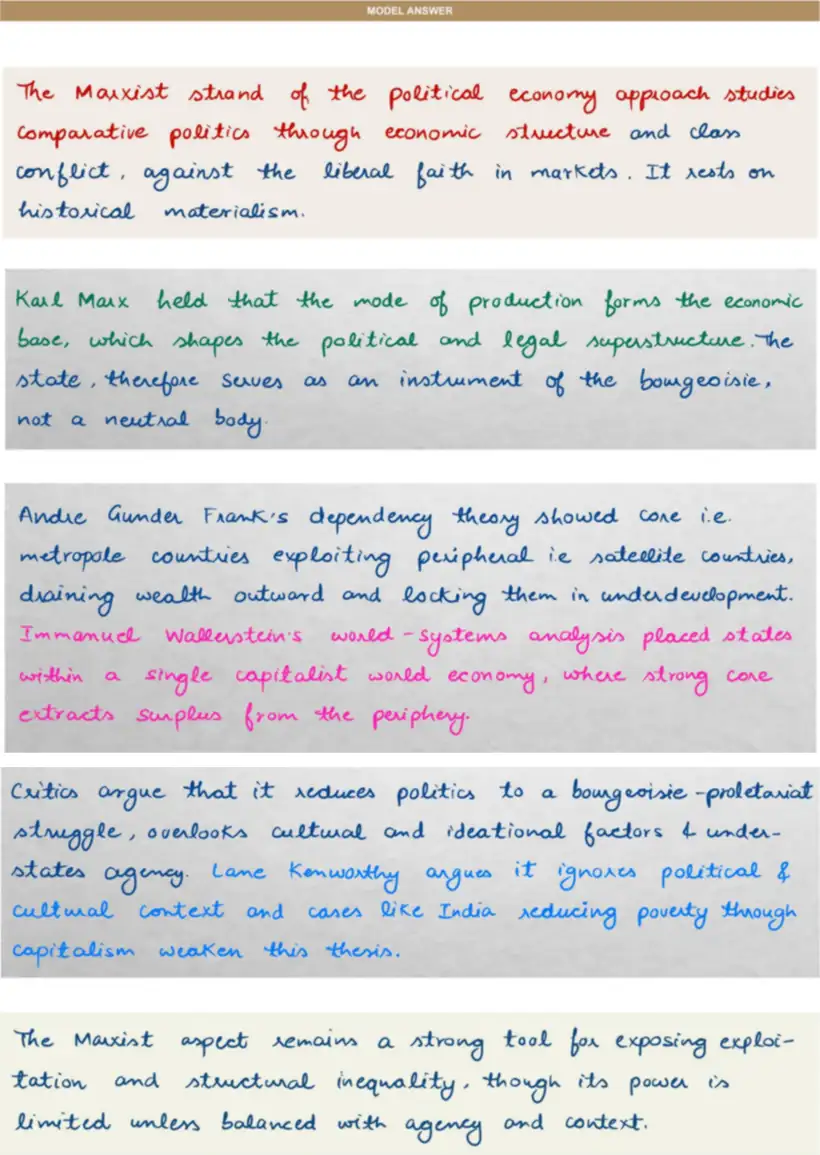 MODEL ANSWER
The Marxist strand of the political economy approach studies
comparative politics through economic structure and class
conflict, against the liberal faith in markets. It rests on
historical materialism.
Karl Marx held that the mode of production forms the economic
base, which shapes the political and legal superstructure. The
state, therefore serves as an instrument of the bourgeoisie,
not a neutral body.
Andre Gunder Frank's dependency theory showed core i.e.
metropole countries exploiting peripheral i.e satellite countries,
draining wealth outward and locking them in underdevelopment.
Immanuel Wallerstein's world-systems analysis placed states
within a single capitalist world economy, where strong core
extracts surplus from the periphery.
Critics argue that it reduces politics to a bourgeoisie-proletariat
struggle, overlooks cultural and ideational factors & under-
states agency. Lane Kenworthy argues it ignores political &
cultural context and cases like India reducing poverty through
capitalism weaken this thesis.
The Marxist aspect remains a strong tool for exposing exploi-
tation and structural inequality, though its power is
limited unless balanced with agency and context.